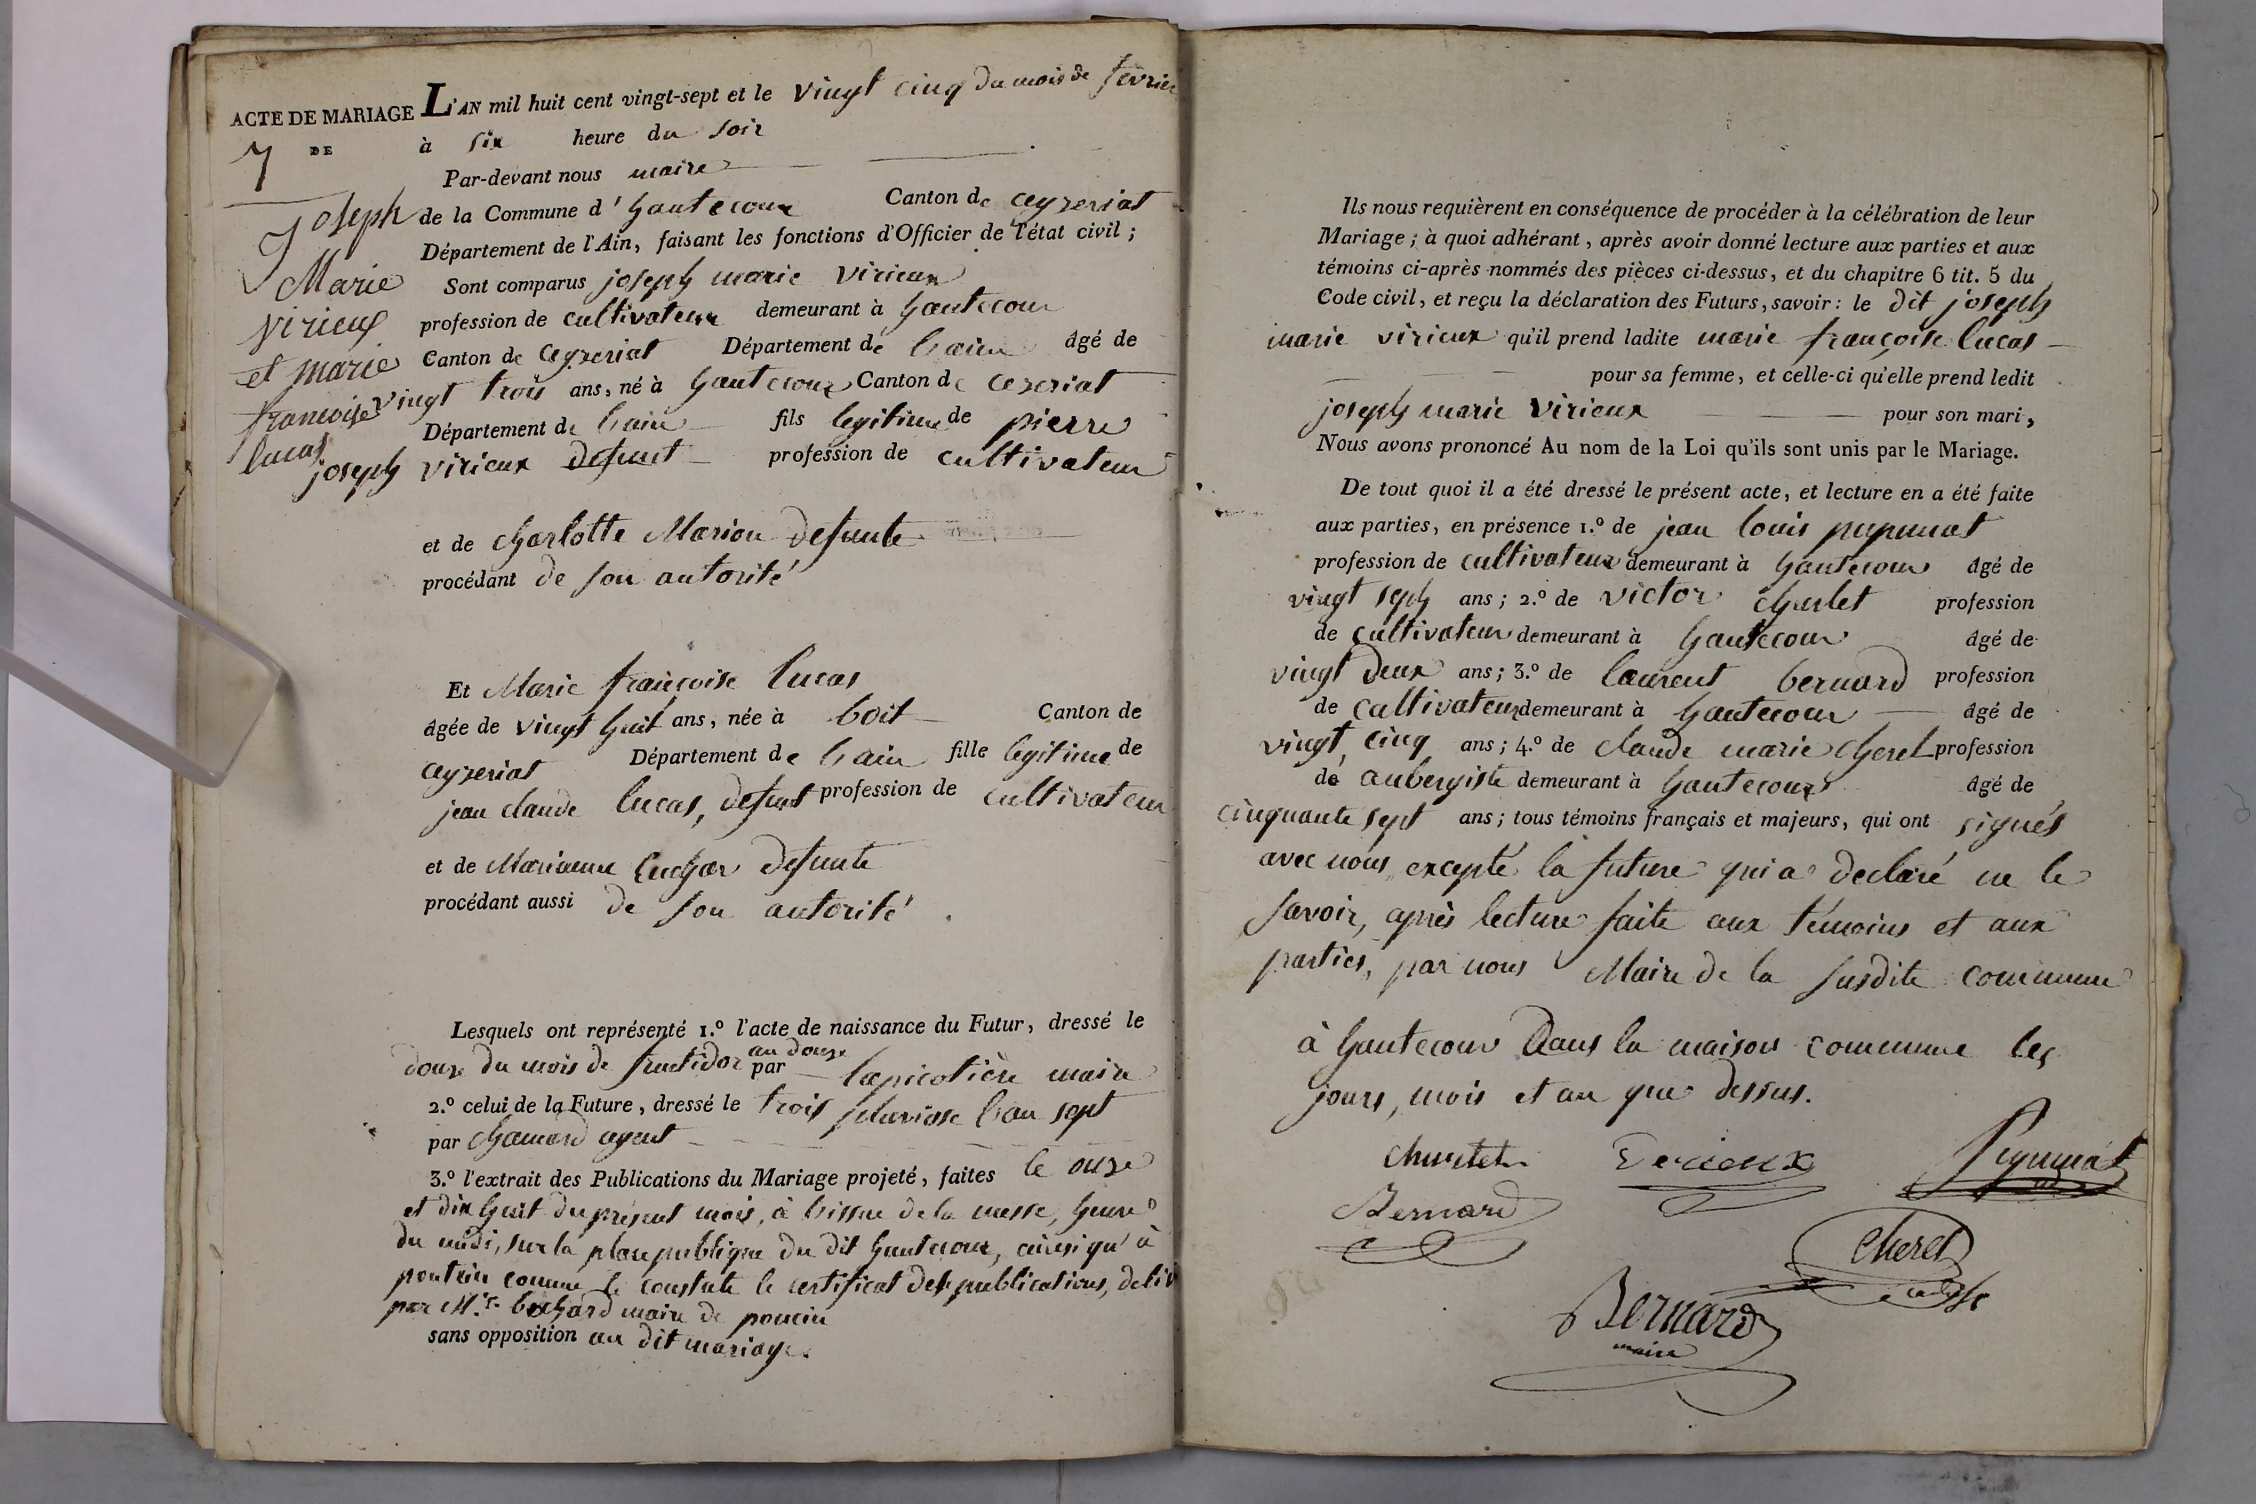 ACTE DE MARIAGE
7 DE
Joseph
Marie
Virieux
et marie
francoise
lucas
L'AN mil huit cent vingt-sept et le vingt cinq du mois de fevrier
à six heure du soir
Par-devant nous maire
de la Commune d'hautecour Canton de ceyzeriat
Département de l'Ain, faisant les fonctions d'Officier de l'état civil;
Sont comparus joseph marie virieux
profession de cultivateur demeurant à hautecour
Canton de Ceyzeriat Département de l'ain âgé de
vingt trois ans, né à hautecour Canton de cezeriat
Département de l'ain fils legitime de pierre
joseph virieux defunt profession de cultivateur
et de charlotte Marion defunte
procédant de son autorité
Et Marie françoise lucas
âgée de vingt huit ans, née à boit Canton de
ceyzeriat Département de l'ain fille legitime de
jean claude lucas, defunt profession de cultivateur
et de Marianne defunte
procédant aussi de son autorité.
Lesquels ont représenté 1.º l'acte de naissance du Futur, dressé le
douze du mois de fructidor an douze par lapicotière maire
2.º celui de la Future, dressé le trois pluviose l'an sept
par chamard agent
3.º l'extrait des Publications du Mariage projeté, faites le onze
et dix huit du présent mois, à l'issue de la messe, heure
du midi, sur la place publique du dit hautecour, ainsi qu'à
poncin comme le constate le certificat des publications, deliv
par M.r maire de poncin
sans opposition au dit mariage.
Ils nous requièrent en conséquence de procéder à la célébration de leur
Mariage; à quoi adhérant, après avoir donné lecture aux parties et aux
témoins ci-après nommés des pièces ci-dessus, et du chapitre 6 tit. 5 du
Code civil, et reçu la déclaration des Futurs, savoir: le dit joseph
marie virieux qu'il prend ladite marie françoise lucas
pour sa femme, et celle-ci qu'elle prend ledit
joseph marie virieux pour son mari,
Nous avons prononcé Au nom de la Loi qu'ils sont unis par le Mariage.
De tout quoi il a été dressé le présent acte, et lecture en a été faite
aux parties, en présence 1.º de jean louis
profession de cultivateur demeurant à hautecour âgé de
vingt seph ans; 2.º de victor profession
de cultivateur demeurant à hautecour âgé de
vingt deux ans; 3.º de laurent bernard profession
de cultivateur demeurant à hautecour âgé de
vingt cinq ans; 4.º de claude marie cheret profession
de aubergiste demeurant à hautecour âgé de
cinquante sept ans; tous témoins français et majeurs, qui ont signés
avec nous, excepté la future qui a declaré ne le
savoir, après lecture faite aux témoins et aux
parties, par nous Maire de la susdite commune
à hautecour dans la maison commune les
jours, mois et an que dessus.
Bernard
cheret
Bernard
maire